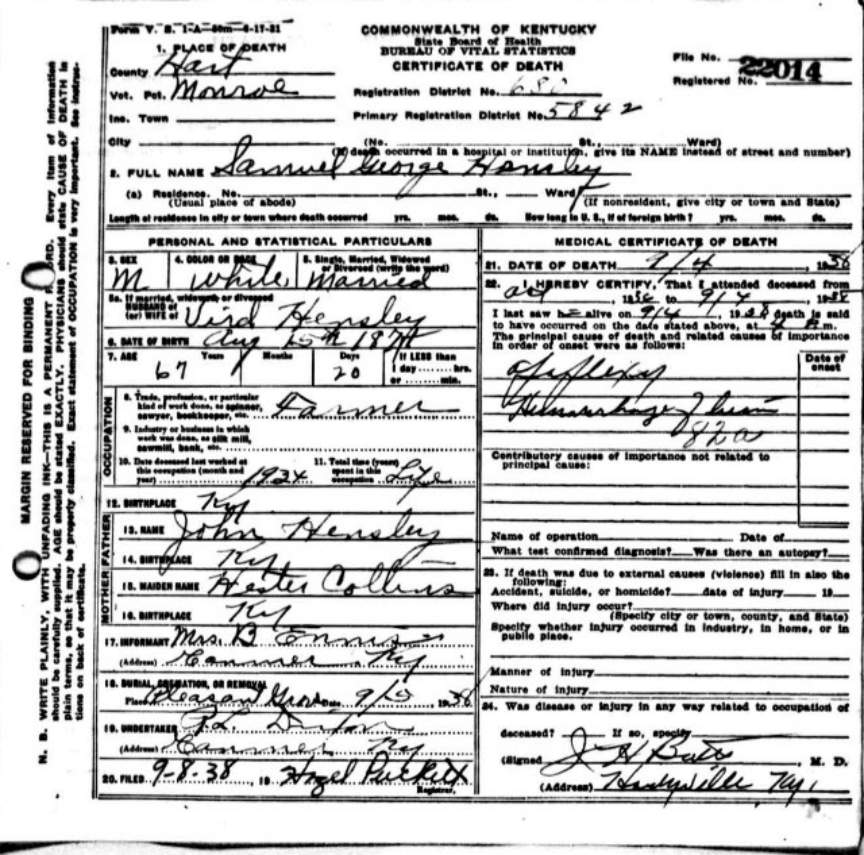 Form V. S. 1-A—50m—6-17-31
COMMONWEALTH OF KENTUCKY
State Board of Health
BUREAU OF VITAL STATISTICS
CERTIFICATE OF DEATH
1. PLACE OF DEATH
County Hart
Vot. Pct. Monroe
Inc. Town
City (No. St., Ward)
(If death occurred in a hospital or institution, give its NAME instead of street and number)
Registration District No. 680
Primary Registration District No. 5842
File No. 22014
Registered No.
2. FULL NAME Samuel George Hensley
(a) Residence. No. St., Ward
(Usual place of abode) (If nonresident, give city or town and State)
Length of residence in city or town where death occurred yrs. mos. ds. How long in U. S., if of foreign birth? yrs. mos. ds.
PERSONAL AND STATISTICAL PARTICULARS
3. SEX M
4. COLOR OR RACE white
5. Single, Married, Widowed or Divorced (write the word) Married
5a. If married, widowed or divorced
HUSBAND of
(or) WIFE of Vird Hensley
6. DATE OF BIRTH Aug 15th 18
7. AGE 67 Years Months 20 Days If LESS than
1 day hrs.
or min.
OCCUPATION
8. Trade, profession, or particular
kind of work done, as spinner,
sawyer, bookkeeper, etc. Farmer
9. Industry or business in which
work was done, as silk mill,
sawmill, bank, etc.
10. Date deceased last worked at
this occupation (month and
year) 1934
11. Total time (years)
spent in this
occupation Life
12. BIRTHPLACE Ky
FATHER
13. NAME John Hensley
14. BIRTHPLACE Ky
MOTHER
15. MAIDEN NAME Hester Collins
16. BIRTHPLACE Ky
17. INFORMANT Mrs. B Ennis
(Address) Canmer Ky
18. BURIAL, CREMATION, OR REMOVAL
Place Pleasant Grove Date 9/5 1938
19. UNDERTAKER Dixon
(Address) Canmer Ky
20. FILED 9-8-38 19 Hazel Puckett
Registrar.
MEDICAL CERTIFICATE OF DEATH
21. DATE OF DEATH 9/4 1938
22. I HEREBY CERTIFY, That I attended deceased from
1936 to 9/4 1938
I last saw he alive on 9/4, 1938 death is said
to have occurred on the date stated above, at 4 m.
The principal cause of death and related causes of importance
in order of onset were as follows:
Date of
onset
Apoplexy
Hemorrhage
82a
Contributory causes of importance not related to
principal cause:
Name of operation Date of
What test confirmed diagnosis? Was there an autopsy?
23. If death was due to external causes (violence) fill in also the
following:
Accident, suicide, or homicide? date of injury 19
Where did injury occur?
(Specify city or town, county, and State)
Specify whether injury occurred in industry, in home, or in
public place.
Manner of injury
Nature of injury
24. Was disease or injury in any way related to occupation of
deceased? If so, specify
(Signed) J H Butts, M. D.
(Address) Hardyville, Ky.
MARGIN RESERVED FOR BINDING
N. B. WRITE PLAINLY, WITH UNFADING INK—THIS IS A PERMANENT RECORD. Every item of information
should be carefully supplied. AGE should be stated EXACTLY. PHYSICIANS should state CAUSE OF DEATH in
plain terms, so that it may be properly classified. Exact statement of OCCUPATION is very important. See instruc-
tions on back of certificate.